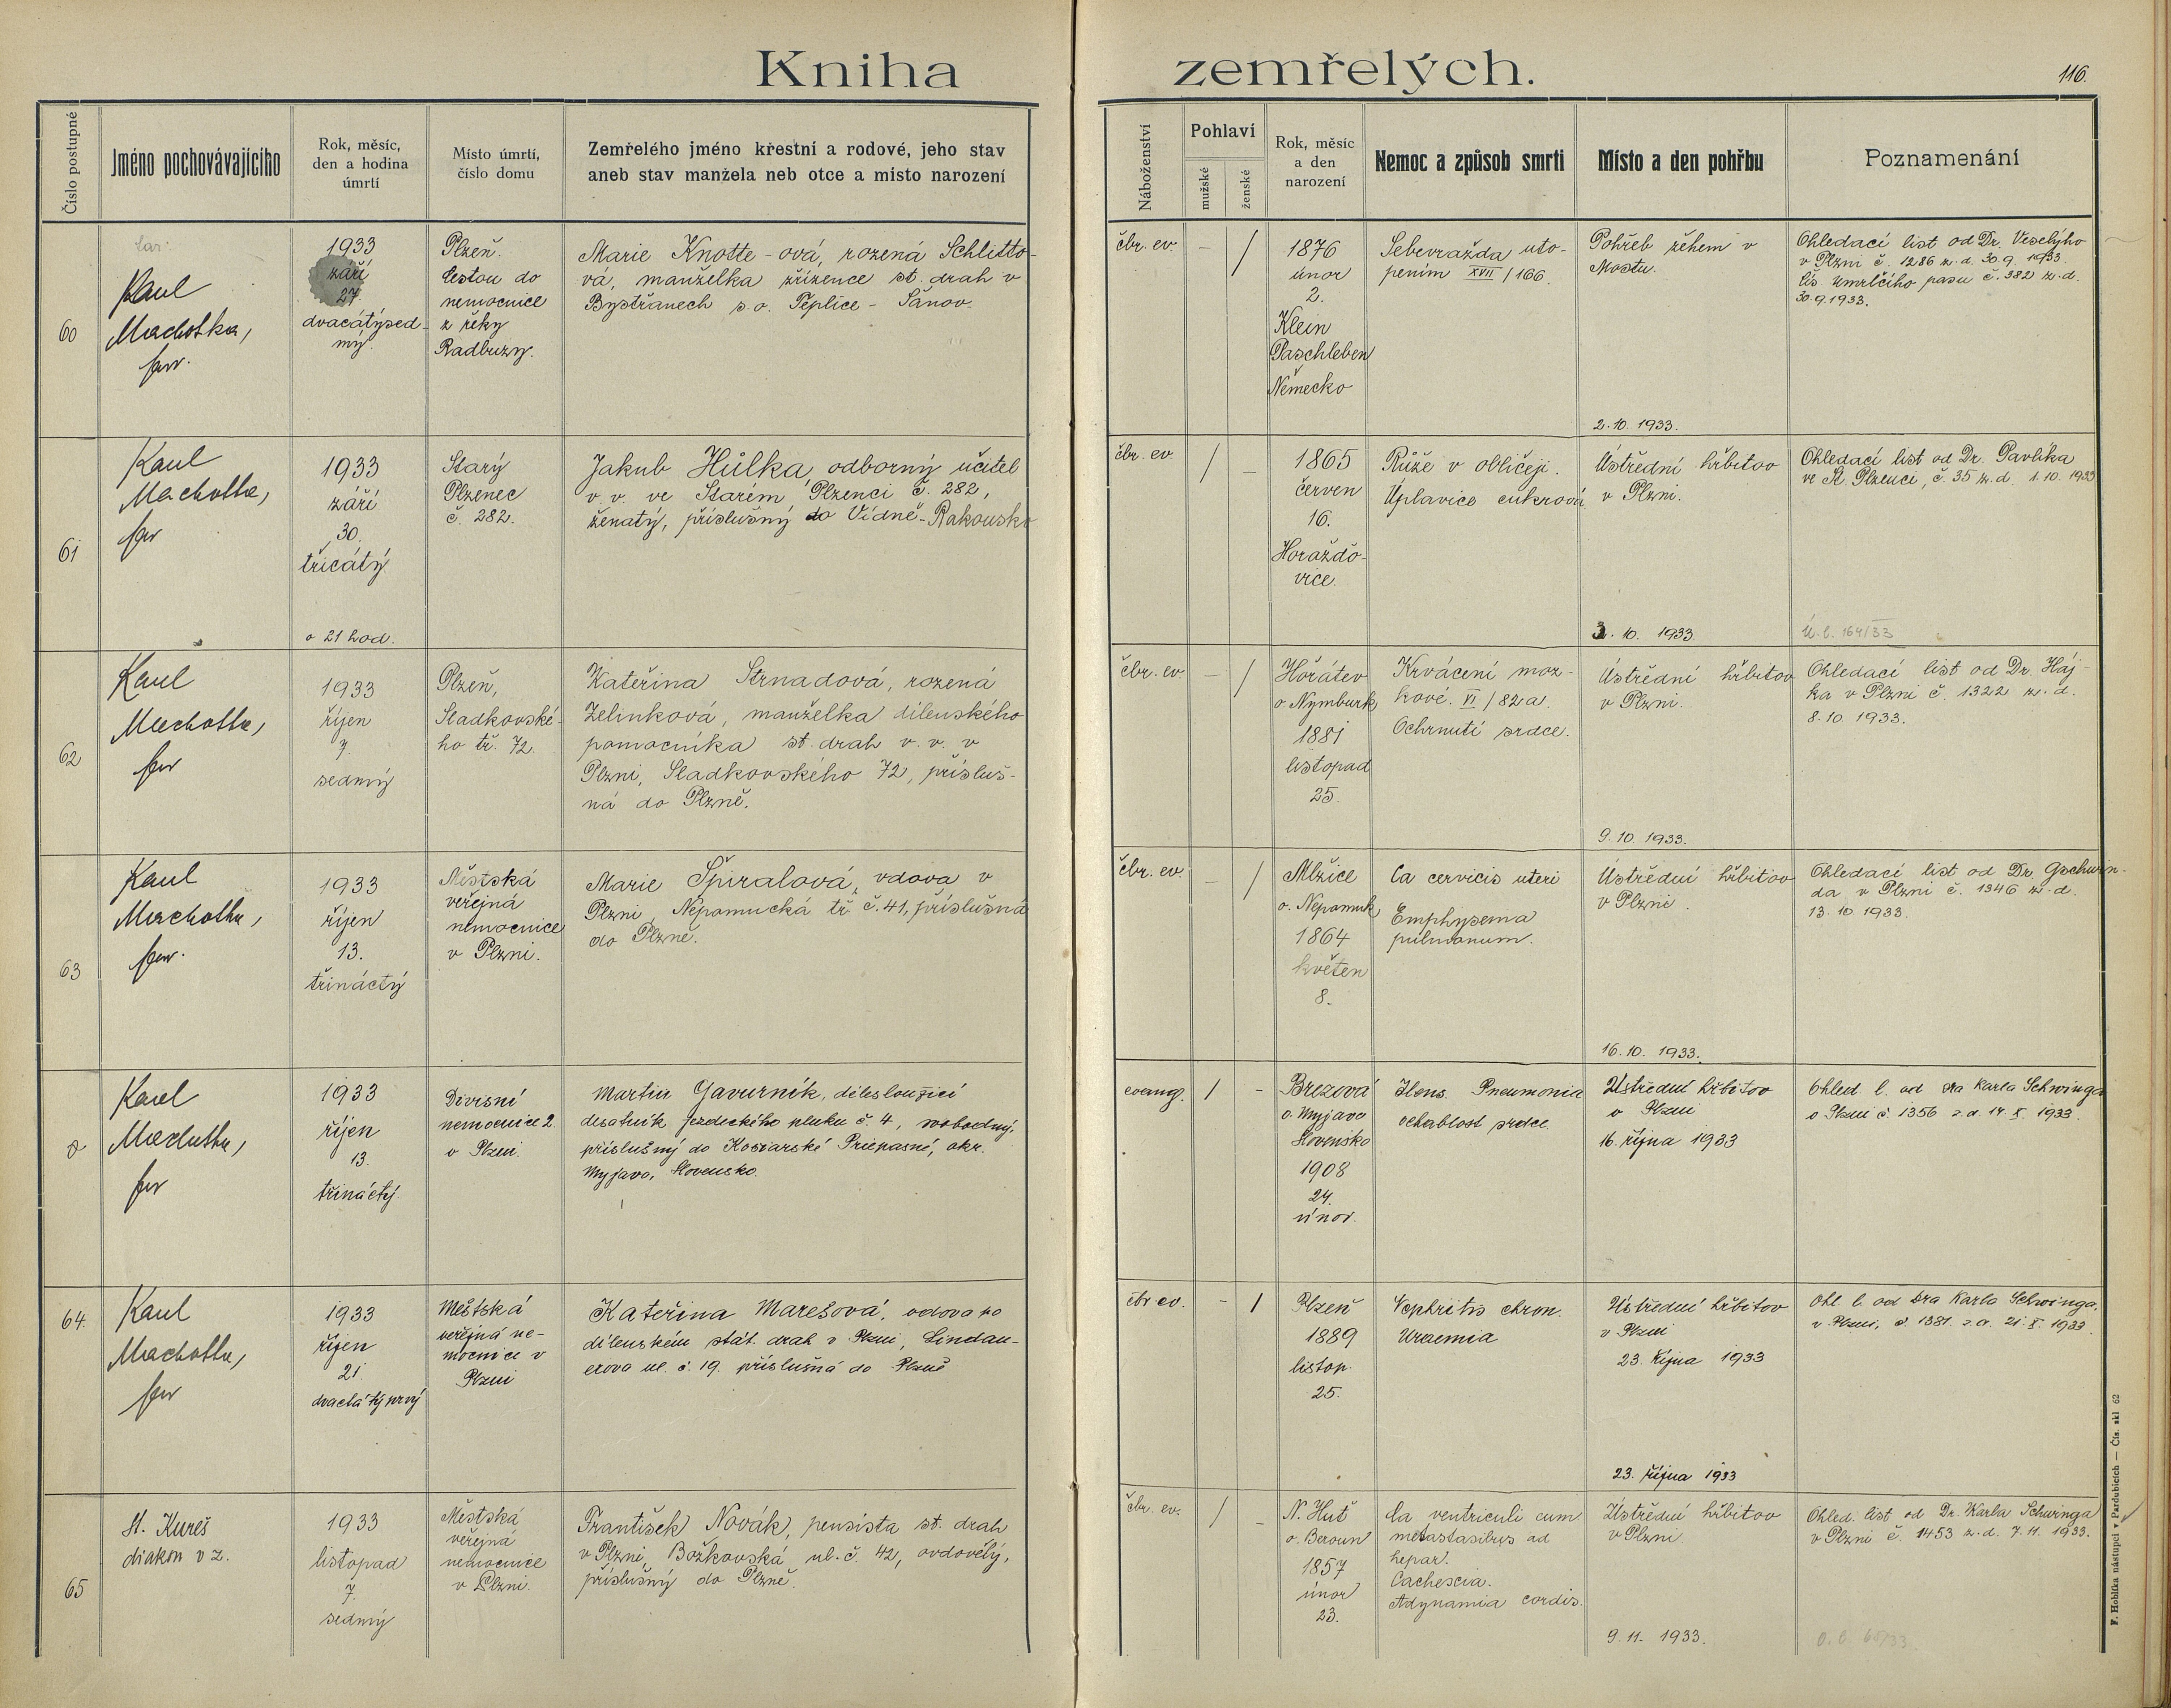 Kniha zemřelých.
116.
Číslo postupné
Jméno pochovávajícího
Rok, měsíc,
den a hodina
úmrtí
Místo úmrtí,
číslo domu
Zemřelého jméno křestní a rodové, jeho stav
aneb stav manžela neb otce a místo narození
Náboženství
Pohlaví
mužské
ženské
Rok, měsíc
a den
narození
Nemoc a způsob smrti
Místo a den pohřbu
Poznamenání
60
Karel
Machotka,
far.
1933
září
27
dvacátýsed-
mý.
Plzeň.
Cestou do
nemocnice
z řeky
Radbuzy.
Marie Knotte-ová, rozená Schlitto-
vá, manželka zřízence st. drah v
Bystřanech s o. Teplice - Šanov.
čbr. ev.
—
/
1876
únor
2.
Klein
Paschleben
Německo
Sebevražda uto-
pením XVII/166.
Pohřeb žehem v
Mostu.
2.10. 1933.
Ohledací list od Dr. Veselýho
v Plzni č. 1286 z. d. 30.9. 1933.
čís. umrlčího pasu č. 382 z. d.
30.9.1933.
61
Karel
Machotka,
far
1933
září
30.
třicátý
o 21 hod.
Starý
Plzenec
č. 282.
Jakub Hůlka, odborný učitel
v. v. ve Starém Plzenci č. 282,
ženatý, příslušný do Vídně-Rakousko
čbr. ev
/
—
1865
červen
16.
Horažďo-
vice.
Růže v obličeji.
Úplavice cukrová
Ústřední hřbitov
v Plzni.
3. 10. 1933.
Ohledací list od Dr. Pavlíka
ve St. Plzenci, č. 35 z. d. 1.10. 1933
ú.l. 164/33
62
Karel
Machotka,
far
1933
říjen
7.
sedmý
Plzeň,
Sladkovské-
ho tř. 72.
Kateřina Strnadová, rozená
Zelinková, manželka dílenského
pomocníka st. drah v. v. v
Plzni, Sladkovského 72, přísluš-
ná do Plzně.
čbr. ev.
—
/
Hořátev
o. Nymburk
1881
listopad
25.
Krvácení moz-
kové. VI/82a.
Ochrnutí srdce.
Ústřední hřbitov
v Plzni.
9.10. 1933.
Ohledací list od Dr. Háj-
ka v Plzni č. 1322 z. d.
8.10. 1933.
63
Karel
Machotka,
far.
1933
říjen
13.
třináctý
Městská
veřejná
nemocnice
v Plzni.
Marie Špiralová, vdova v
Plzni, Nepomucká tř. č. 41, příslušná
do Plzně.
čbr. ev.
—
/
Mžice
o. Nepomuk
1864
květen
8.
Ca cervicis uteri
Emphysema
pulmonum.
Ústřední hřbitov
v Plzni.
16.10. 1933.
Ohledací list od Dr. Gschwin-
da v Plzni č. 1346 z. d.
13.10. 1933.
Karel
Machotka,
far
1933
říjen
13.
třináctý.
Divisní
nemocnice 2.
v Plzni.
Martin Gavurník, délesloužící
desátník jezdeckého pluku č. 4, svobodný,
příslušný do Kosiarské Priepasné, okr.
Myjava, Slovensko.
evang.
/
-
Brezová
o. Myjava
Slovensko
1908
24.
únor.
Ileus. Pneumonia
ochablost srdce.
Ústřední hřbitov
v Plzni
16. října 1933
Ohled l. od Dra Karla Schwinga
v Plzni č. 1356 z. d. 14. X. 1933.
64.
Karel
Machotka,
far
1933
říjen
21.
dvacátýprvý
Městská
veřejná ne-
mocnice v
Plzni
Kateřina Marešová, vdova po
dílenském stát. drah v Plzni, Lindau-
erova ul. č. 19. příslušná do Plzně
čbr ev.
-
/
Plzeň
1889
listop.
25.
Nephritis chron.
Uraemia
Ústřední hřbitov
v Plzni
23. října 1933
23. října 1933
Ohl. l. od Dra Karla Schwinga.
v Plzni, č. 1381. z. d. 21. X. 1933.
65
St. Kureš
diakon v z.
1933
listopad
7.
sedmý
Městská
veřejná
nemocnice
v Plzni.
František Novák, pensista st. drah
v Plzni, Božkovská ul. č. 42, ovdovělý,
příslušný do Plzně.
čbr. ev.
/
—
N. Huť
o. Beroun
1857
únor
23.
Ca ventriculi cum
metastasibus ad
hepar.
Cachescia.
Adynamia cordis.
Ústřední hřbitov
v Plzni
9.11. 1933.
Ohled. list od Dr. Karla Schwinga
v Plzni č. 1453 z. d. 7.11. 1933.
F. Hoblíka nástupci v Pardubicích — Čís. skl 62